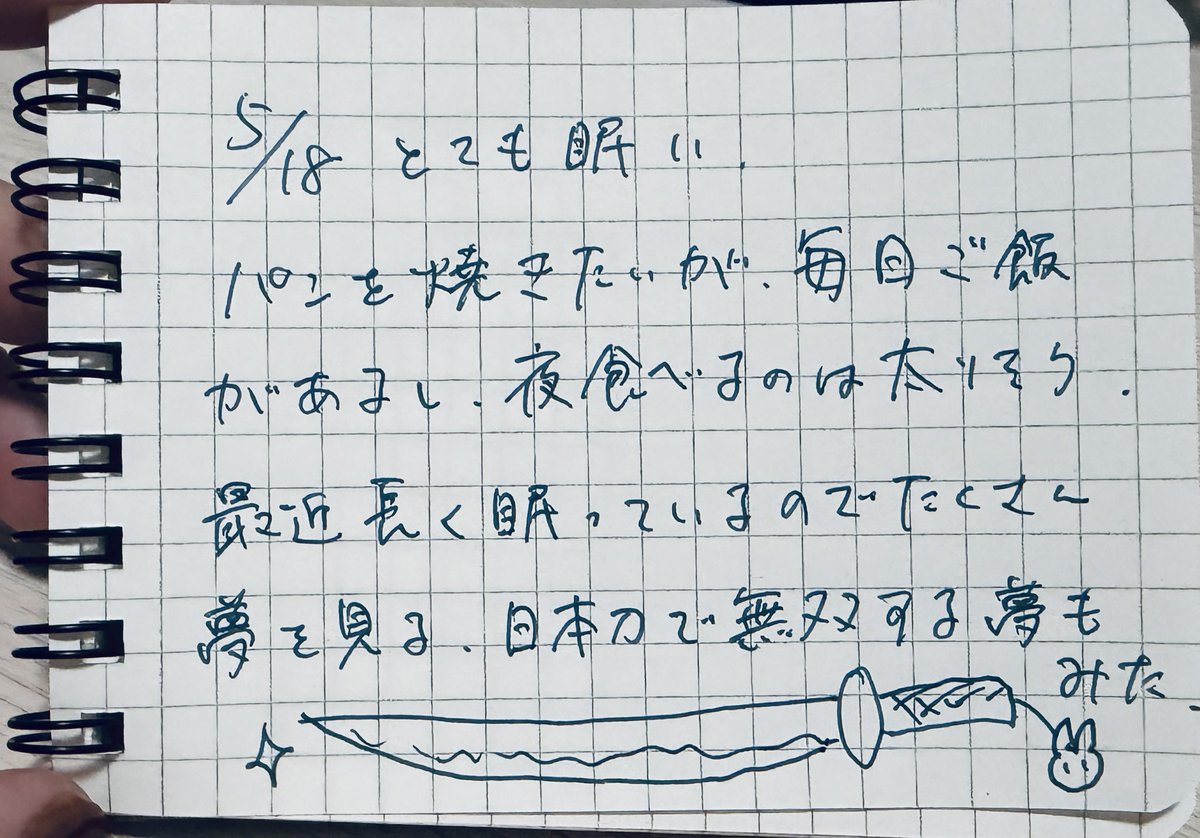 5/18 とても眠い.
パンを焼きたいが、毎日ご飯
があるし、夜食べるのは太りそう.
最近長く眠っているのでたくさん
夢を見る、日本刀で無双する夢も
みた、